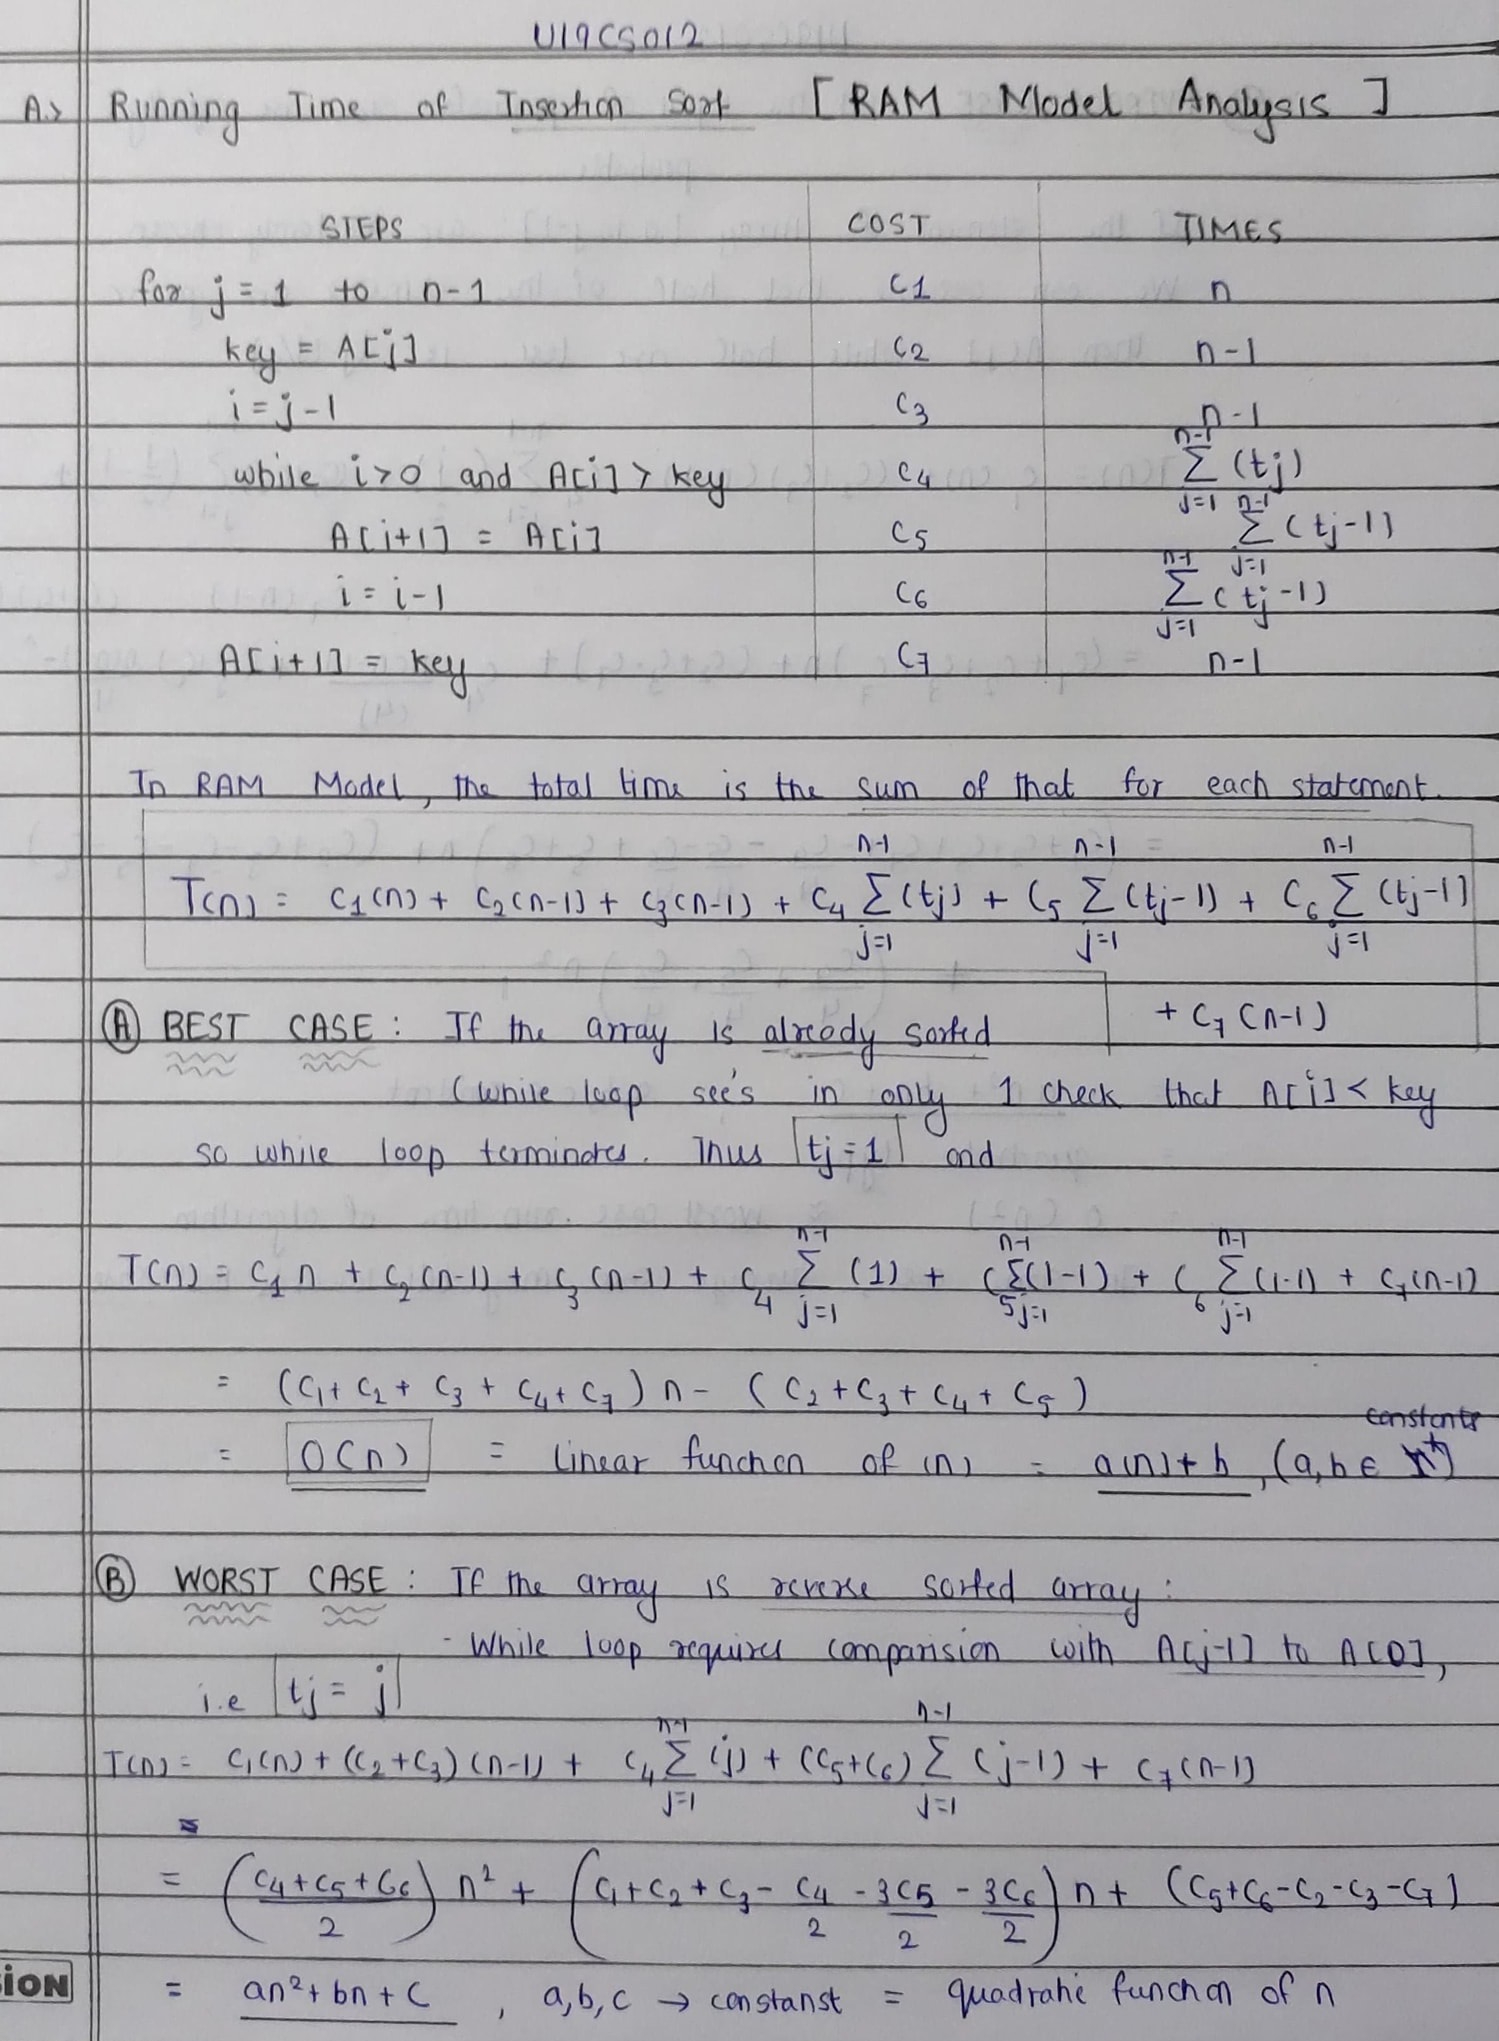 U19CS012
A.> Running Time of Insertion Sort [RAM Model Analysis]
STEPS COST TIMES
for j = 1 to n-1 C1 n
key = A[j] C2 n-1
i = j-1 C3 n-1
while i>0 and A[i] > key C4 n-1 Σ j=1 (tj)
A[i+1] = A[i] C5 n-1 Σ j=1 (tj-1)
i = i-1 C6 n-1 Σ j=1 (tj-1)
A[i+1] = key C7 n-1
In RAM Model, the total time is the sum of that for each statement.
T(n) = C1(n) + C2(n-1) + C3(n-1) + C4 n-1 Σ j=1 (tj) + C5 n-1 Σ j=1 (tj-1) + C6 n-1 Σ j=1 (tj-1)
+ C7 (n-1)
(A) BEST CASE : If the array is already sorted
(while loop see's in only 1 check that A[i] < key
so while loop terminates. Thus tj = 1 and
T(n) = C1 n + C2 (n-1) + C3 (n-1) + C4 n-1 Σ j=1 (1) + C5 n-1 Σ j=1 (1-1) + C6 n-1 Σ j=1 (1-1) + C7(n-1)
= (C1 + C2 + C3 + C4 + C7) n - (C2 + C3 + C4 + C5)
constants
= O(n) = linear function of (n) = a(n) + b , (a,b ∈
(B) WORST CASE : If the array is reverse sorted array :
- While loop requires comparision with A[j-1] to A[0],
i.e tj = j
T(n) = C1(n) + (C2+C3) (n-1) + C4 n-1 Σ j=1 (j) + (C5+C6) n-1 Σ j=1 (j-1) + C7(n-1)
= (C4+C5+C6 / 2) n² + (C1+C2+C3 - C4/2 - 3C5/2 - 3C6/2) n + (C5+C6-C2-C3-C7)
= an² + bn + C , a,b,c → constanst = quadratic function of n
ION